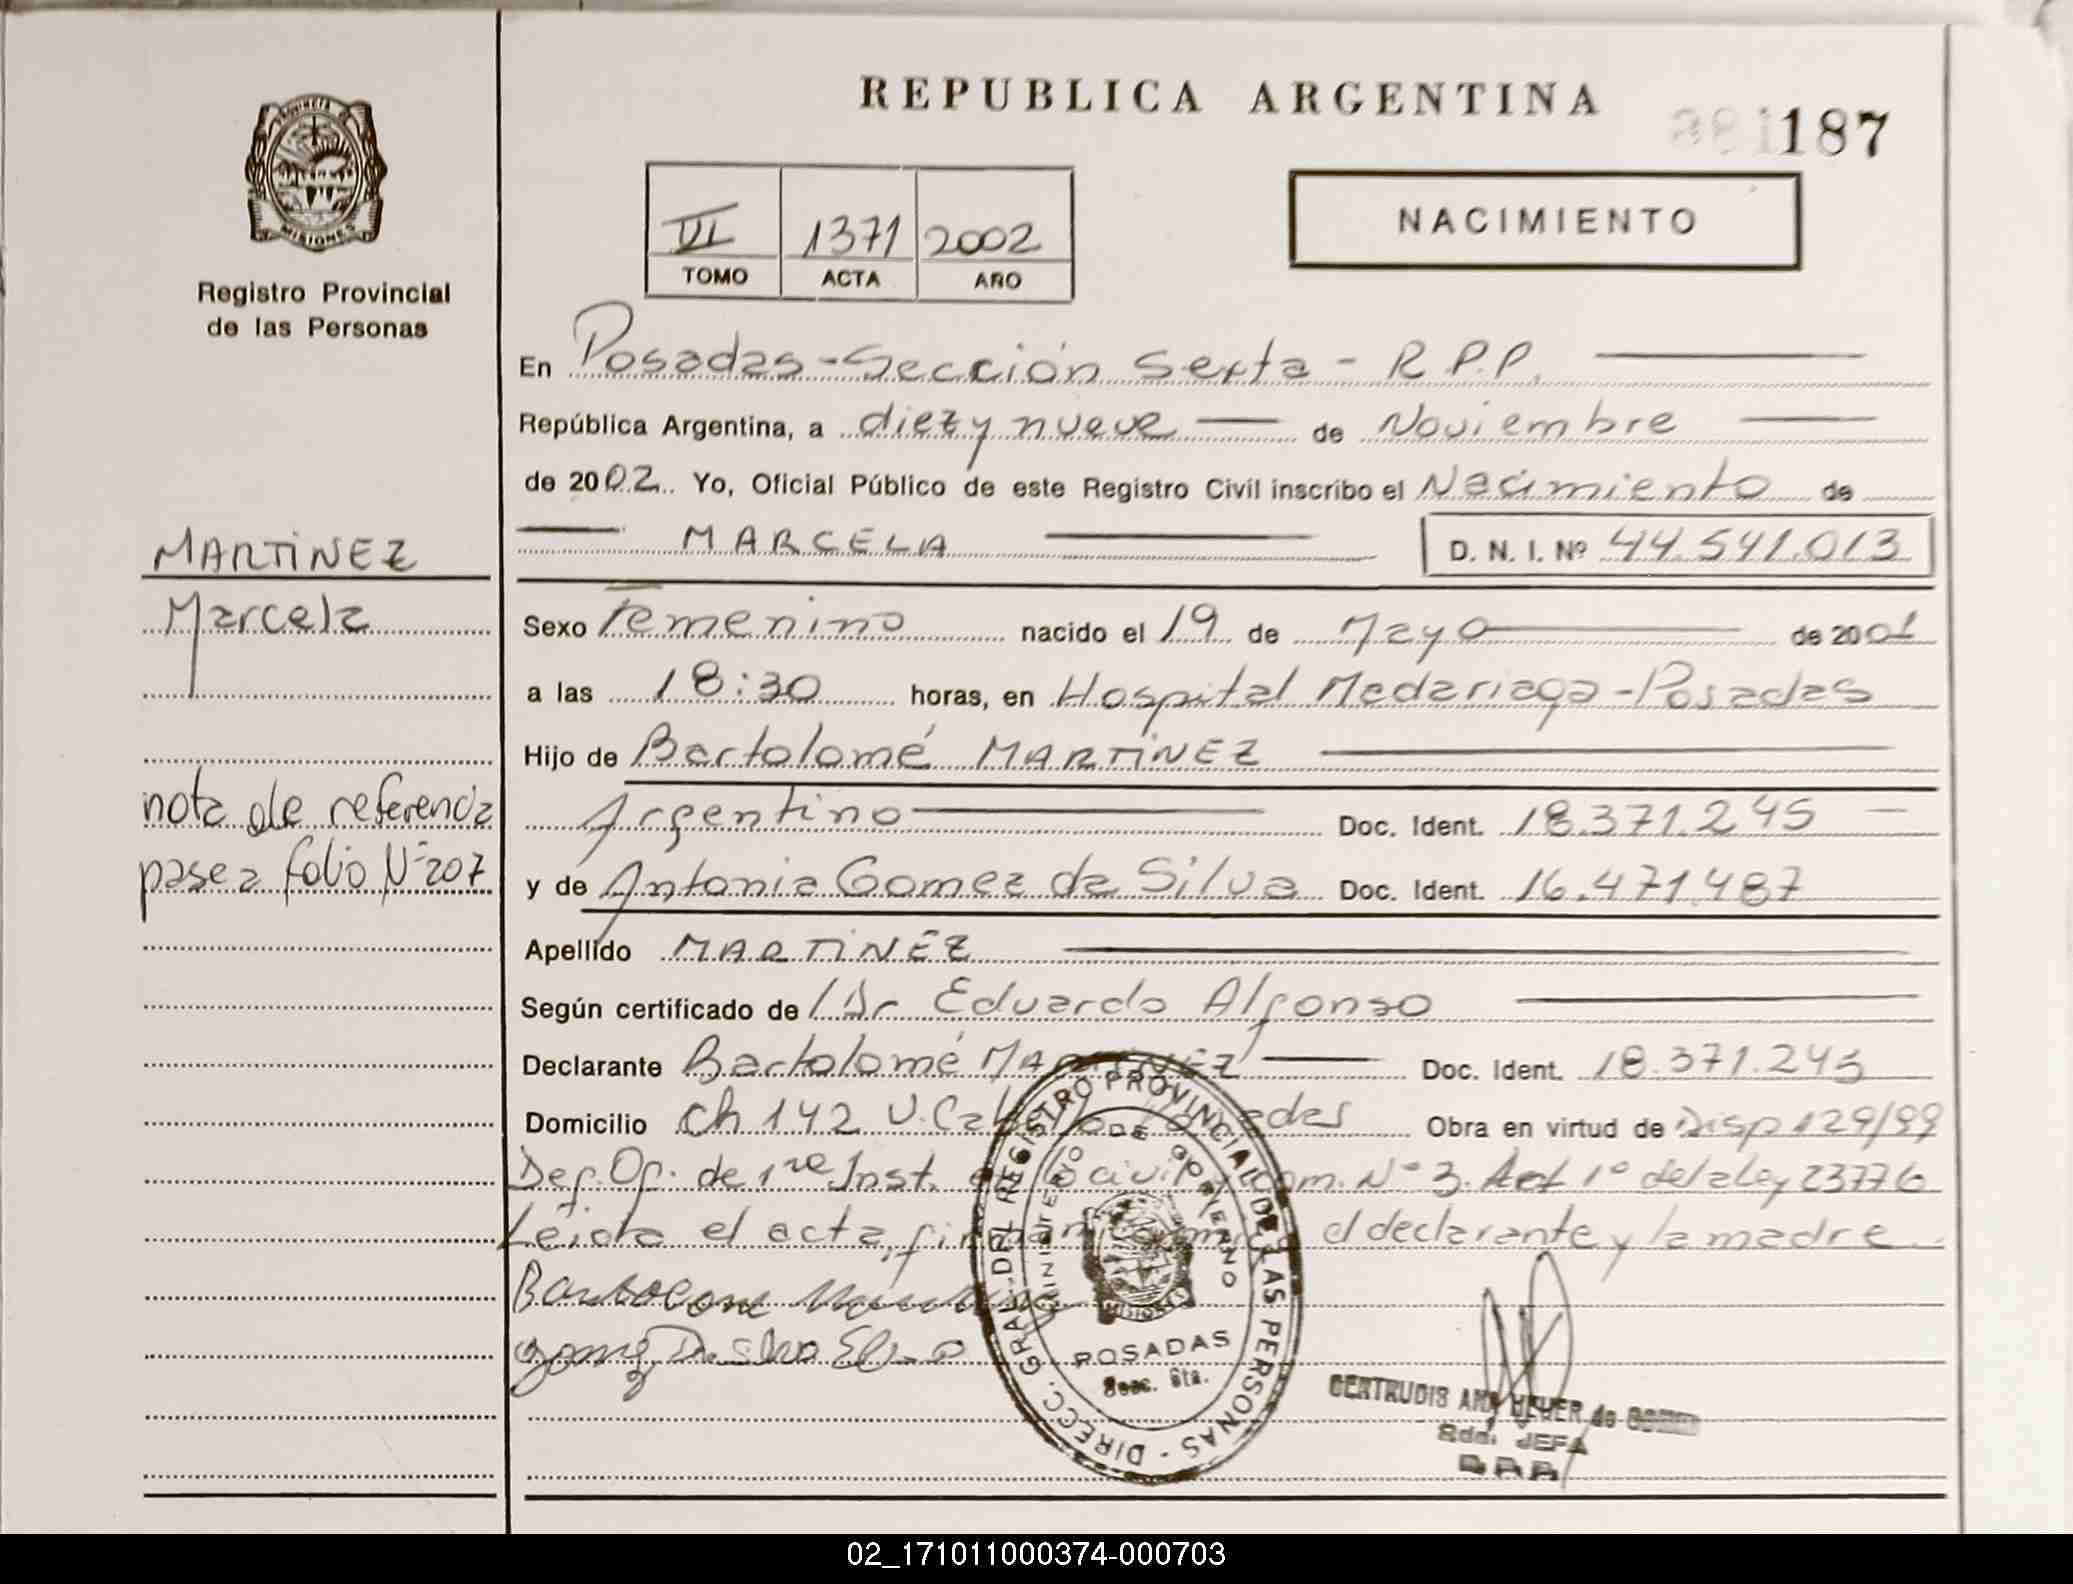 REPUBLICA ARGENTINA
187
PROVINCIA
MISIONES
Registro Provincial
de las Personas
VI 1371 2002
TOMO ACTA AÑO
NACIMIENTO
En Posadas - Sección Sexta - R.P.P.
República Argentina, a diez y nueve de Noviembre
de 2002. Yo, Oficial Público de este Registro Civil inscribo el Nacimiento de
MARCELA D. N. I. Nº 44.541.013
MARTINEZ
Marcela
Sexo Femenino nacido el 19 de Mayo de 2001
a las 18:30 horas, en Hospital Madariaga - Posadas
Hijo de Bartolomé MARTINEZ
nota de referencia
pase a folio Nº 207
Argentino Doc. Ident. 18.371.245
y de Antonia Gomez da Silva Doc. Ident. 16.471.487
Apellido MARTINEZ
Según certificado de Dr Eduardo Alfonso
Declarante Bartolomé MARTINEZ Doc. Ident. 18.371.245
Domicilio Ch 142 Obra en virtud de Disp 129/99
Def. Of. de 1ra Inst. civil y Com. Nº 3. Art 1º de la ley 23776
Leida el acta, el declarante y la madre
DIRECC. GRAL. DEL REGISTRO PROVINCIAL DE LAS PERSONAS
MINISTERIO DE GOBIERNO
MISIONES
POSADAS
Secc. 6ta.
GERTRUDIS ANA de
JEFA
02_171011000374-000703